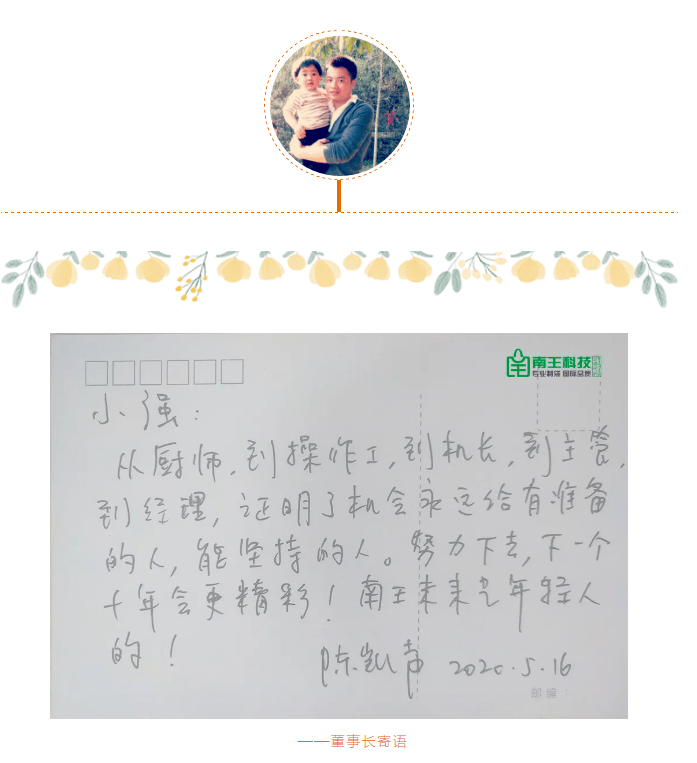 南王科技
专业制袋 国际品质
小强：
从厨师，到操作工，到机长，到主管，
到经理，证明了机会永远给有准备
的人，能坚持的人。努力下去，下一个
十年会更精彩！南王未来是年轻人
的！
陈凯声 2020.5.16
邮编：
——董事长寄语